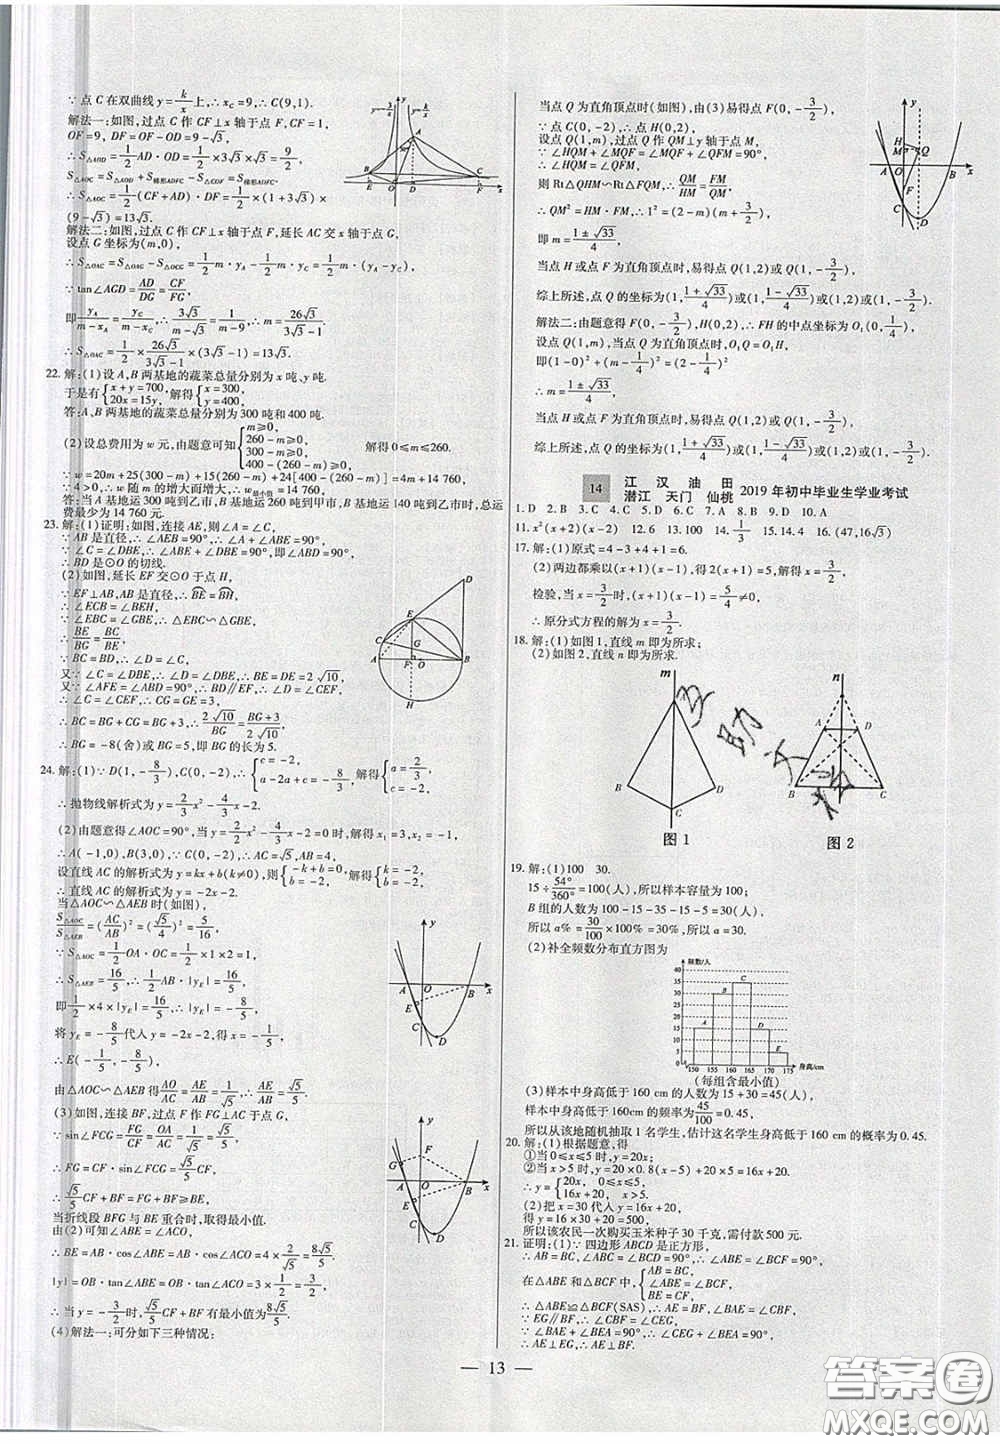 ∵点C在双曲线y=k/x上,∴x_C=9,∴C(9,1).
解法一:如图,过点C作CF⊥x轴于点F,CF=1,
OF=9,DF=OF-OD=9-√3,
∴S△AOD=1/2AD·OD=1/2×3√3×√3=9/2
∵S△AOD+S梯形ADFC-S△COF=S梯形ADFC,
∴S△OAC=1/2(CF+AD)·DF=1/2×(1+3√3)×
(9-√3)=13√3.
解法二:如图,过点C作CF⊥x轴于点F,延长AC交x轴于点G,
设点G坐标为(m,0),
∵tan∠AGD=AD/DG=CF/FG,
∴S△OAC=1/2×26√3/(3√3-1)×(3√3-1)=13√3.
22.解:(1)设A,B两基地的蔬菜总量分别为x吨、y吨.
于是有{x+y=700, 20x=15y, 解得{x=300, y=400.
答:A,B两基地的蔬菜总量分别为300吨和400吨.
(2)设总费用为w元,由题意可知{m≥0, 260-m≥0, 300-m≥0, 400-(260-m)≥0, 解得0≤m≤260.
∵w=20m+25(300-m)+15(260-m)+24[400-(260-m)]=4m+14 760,
∵4>0,∴w随m的增大而增大,∴w最小值=14 760.
答:A基地运300吨到乙市,B基地运260吨到甲市,B基地运140吨到乙市时,总运
费最少为14 760元.
23.解:(1)证明:如图,连接AE,则∠A=∠C,
∵AB是直径,∴∠AEB=90°,∴∠A+∠ABE=90°.
∵∠C=∠DBE,∴∠ABE+∠DBE=90°,即∠ABD=90°,
∴BD是⊙O的切线.
(2)如图,延长EF交⊙O于点H,
∵EF⊥AB,AB是直径,∴BE=BH,
∴∠ECB=∠BEH,
∵∠EBC=∠GBE,∴△EBC∽△GBE,
∴BE/BG=BC/BE,
∵BC=BD,∴∠D=∠C,
又∵∠C=∠DBE,∴∠D=∠DBE,∴BE=DE=2√10,
又∵∠AFE=∠ABD=90°,∴BD∥EF,∴∠D=∠CEF,
∴∠C=∠CEG,∴CG=GE=3,
∴BC=BG+CG=BG+3,∴2√10/BG=(BG+3)/2√10,
∴BG=-8(舍)或BG=5,即BG的长为5.
24.解:(1)∵D(1,-8/3),C(0,-2),∴{c=-2, a-2a+c=-8/3, 解得{a=2/3, c=-2.
∴抛物线解析式为y=2/3x²-4/3x-2.
∴A(-1,0),B(3,0),∵C(0,-2),∴AC=√5,AB=4,
设直线AC的解析式为y=kx+b(k≠0),则{-k+b=0, b=-2, 解得{k=-2, b=-2.
∴直线AC的解析式为y=-2x-2.
当△AOC∽△AEB时(如图),
S△AOC/S△AEB=(AC/AB)²=(√5/4)²=5/16,
∵S△AOC=1/2OA·OC=1/2×1×2=1
∴S△AEB=16/5,∴1/2AB·|y_E|=16/5,
即1/2×4×|y_E|=16/5,
将y_E=-8/5代人y=-2x-2,得x=-1/5,
∴E(-1/5,-8/5),
由△AOC∽△AEB得AO/AC=AE/AB=1/√5,∴AE/AB=1/√5.
(3)如图,连接BF,过点F作FG⊥AC于点G,
∵sin∠FCG=FG/CF=OA/AC=1/√5,
∴FG=CF·sin∠FCG=√5/5CF,
∴√5/5CF+BF=FG+BF≥BG,
当折线段BFG与BE重合时,取得最小值.
由(2)可知∠ABE=∠ACO,
∴BE=AB·cos∠ABE=AB·cos∠ACO=4×2/√5=8√5/5,
|y|=OB·tan∠ABE=OB·tan∠ACO=3×1/2=3/2,
(4)解法一:可分如下三种情况:
当点Q为直角顶点时(如图),由(3)易得点F(0,-3/2),
∵点C(0,-2),∴点H(0,2),
设点Q(1,m),过点Q作QM⊥y轴于点M,
∵∠HQM+∠MQF=∠MQF+∠MFQ=90°,
∴∠HQM=∠MFQ,又∠HMQ=∠QMF=90°,
则Rt△QHM∽Rt△FQM,∴QM/HM=FM/QM,
∴QM²=HM·FM,∴1²=(2-m)(m+3/2),
即m=(1±√33)/4,
当点H或点F为直角顶点时,易得点Q(1,2)或(1,-3/2),
综上所述,点Q的坐标为(1,(1+√33)/4)或(1,(1-√33)/4)或(1,2)或(1,-3/2).
解法二:由题意得F(0,-3/2),H(0,2),∴FH的中点坐标为O₁(0,1/4),
设点Q(1,m),当点Q为直角顶点时,O₁Q=O₁H,
∴m=(1±√33)/4,
当点H或点F为直角顶点时,易得点Q(1,2)或(1,-3/2),
综上所述,点Q的坐标为(1,(1+√33)/4)或(1,(1-√33)/4)或(1,2)或(1,-3/2).
14 江汉油田 潜江 天门 仙桃 2019年初中毕业生学业考试
1.D 2.B 3.C 4.C 5.C 6.C 7.A 8.B 9.D 10.A
11.x²(x+2)(x-2) 12.6 13.100 14.1/3 15.14.4 16.(47,16√3)
17.解:(1)原式=4-3+4+1=6.
(2)两边都乘以(x+1)(x-1),得2(x+1)=5,解得x=3/2,
检验,当x=3/2时,(x+1)(x-1)=5/4≠0,
∴原分式方程的解为x=3/2.
18.解:(1)如图1,直线m即为所求;
(2)如图2,直线n即为所求.
图1 图2
19.解:(1)100 30.
15÷54°/360°=100(人),所以样本容量为100;
B组的人数为100-15-35-15-5=30(人),
所以a%=30/100×100%=30%,所以a=30.
(2)补全频数分布直方图为
频数/人
40
35
30
25
20
15
10
5
A B C D E
150 155 160 165 170 175 身高/cm
(每组含最小值)
(3)样本中身高低于160 cm的人数为15+30=45(人),
样本中身高低于160cm的频率为45/100=0.45,
所以从该地随机抽取1名学生,估计这名学生身高低于160 cm的概率为0.45.
20.解:(1)根据题意,得
①当0≤x≤5时,y=20x;
②当x>5时,y=20×0.8(x-5)+20×5=16x+20,
∴y={20x,0≤x≤5, 16x+20,x>5.
(2)把x=30代人y=16x+20,
得y=16×30+20=500,
所以该农民一次购买玉米种子30千克,需付款500元.
21.证明:(1)∵四边形ABCD是正方形,
∴AB=BC,∠ABC=∠BCD=90°,
在△ABE和△BCF中,{AB=BC, ∠ABE=∠BCF, BE=CF,
∴△ABE≌△BCF(SAS),∴AE=BF,∠BAE=∠CBF,
∵EG∥BF,∴∠CBF=∠CEG,
∵∠BAE+∠BEA=90°,∴∠CEG+∠BEA=90°,
∴AE⊥EG,∴AE⊥BF.
— 13 —
答案圈
MXQE.COM